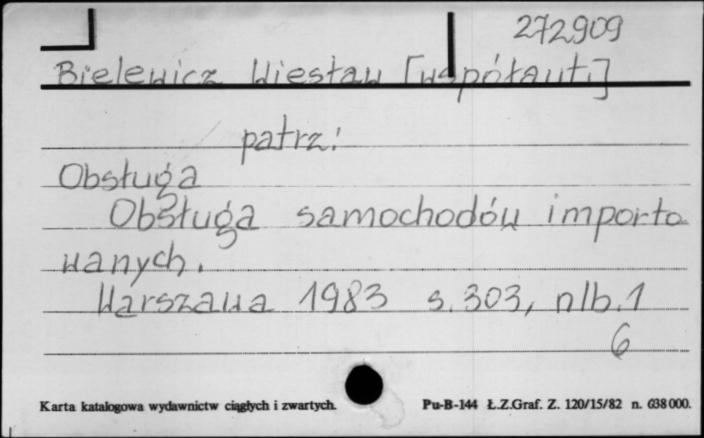 272909
Bielewicz Wiesław [współaut.]
patrz:
Obsługa
Obsługa samochodów importo
wanych.
Warszawa 1983 s. 303, nlb. 1
6
Karta katalogowa wydawnictw ciągłych i zwartych. Pu-B-144 Ł.Z.Graf. Z. 120/15/82 n. 638000.